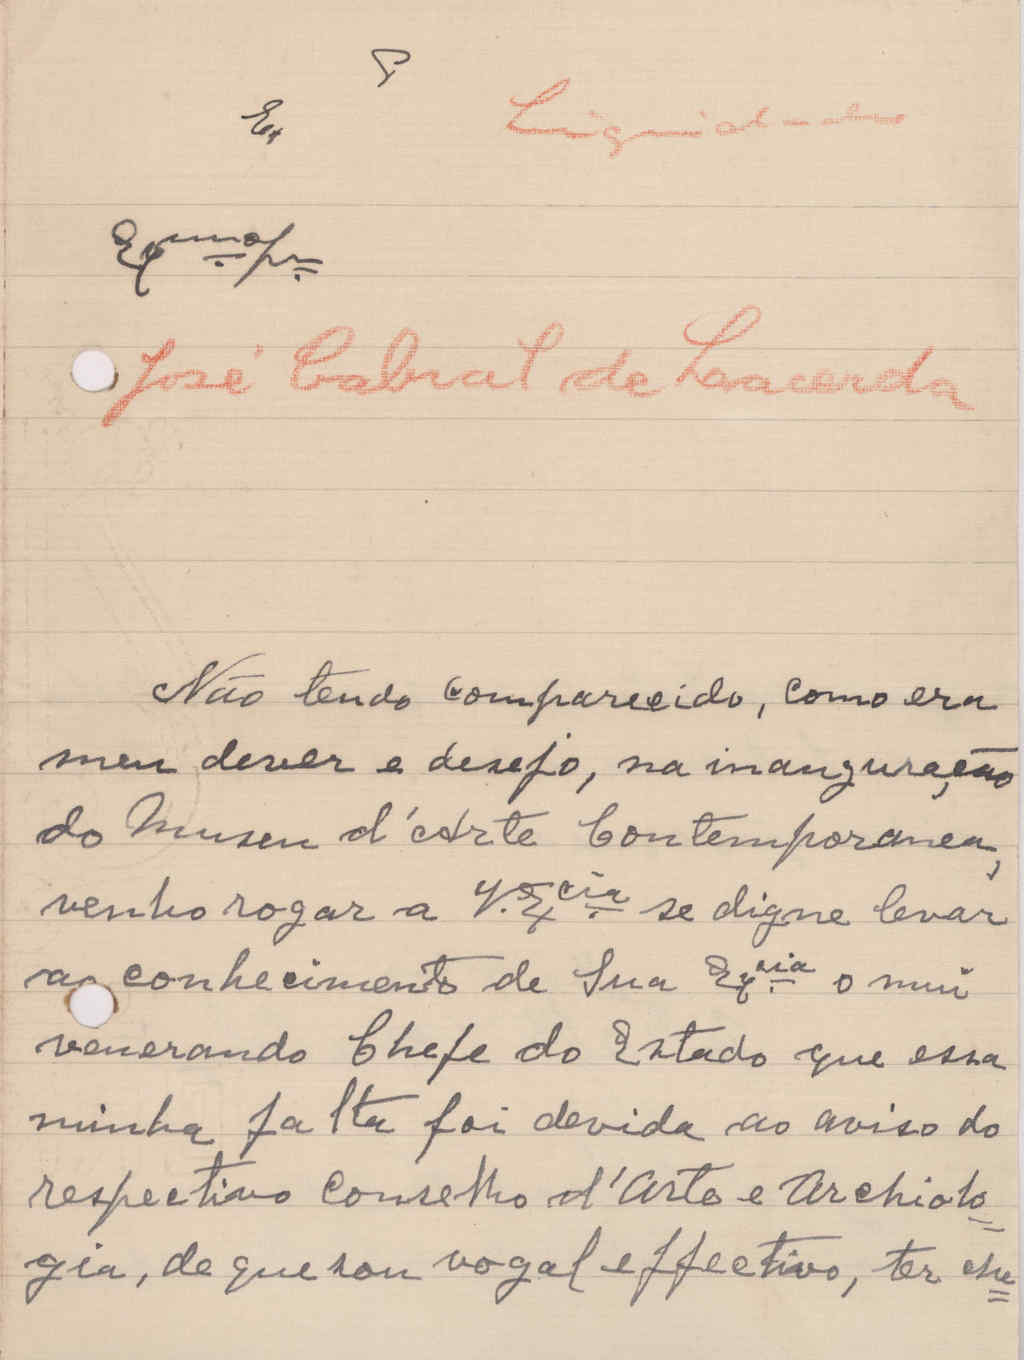 Liquidado
Ex
Exmo Snr
José Cabral de Lacerda
Não tendo comparecido, como era
meu dever e desejo, na inauguração
do Museu d'Arte Contemporanea,
venho rogar a V. Excia se digne levar
ao conhecimento de Sua Excia o mui
venerando Chefe do Estado que essa
minha falta foi devida ao aviso do
respectivo Conselho d'Arte e Archiolo=
gia, de que sou vogal effectivo, ter che=